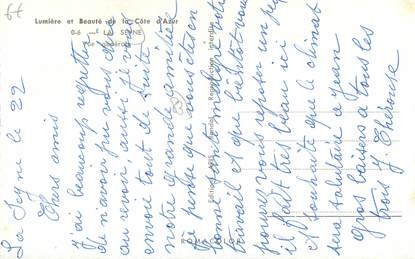 Lumière et Beauté de la Côte d'Azur
0-6 - LA SEYNE
Vue générale
La Seyne le 22
Chers amis
J'ai beaucoup regretté
de n'avoir pu vous dire
au revoir, aussi je vous
envoie tout de suite
notre grande amitié
Je pense que vous êtes en
bonne santé, le
travail et que bientôt vous
pouvez vous reposer un peu
il fait très beau ici
et souhaite que le climat
sera salutaire a Jean
gros baisers a tous les
trois Y.
Reproduction interdite
ROMACOLOR